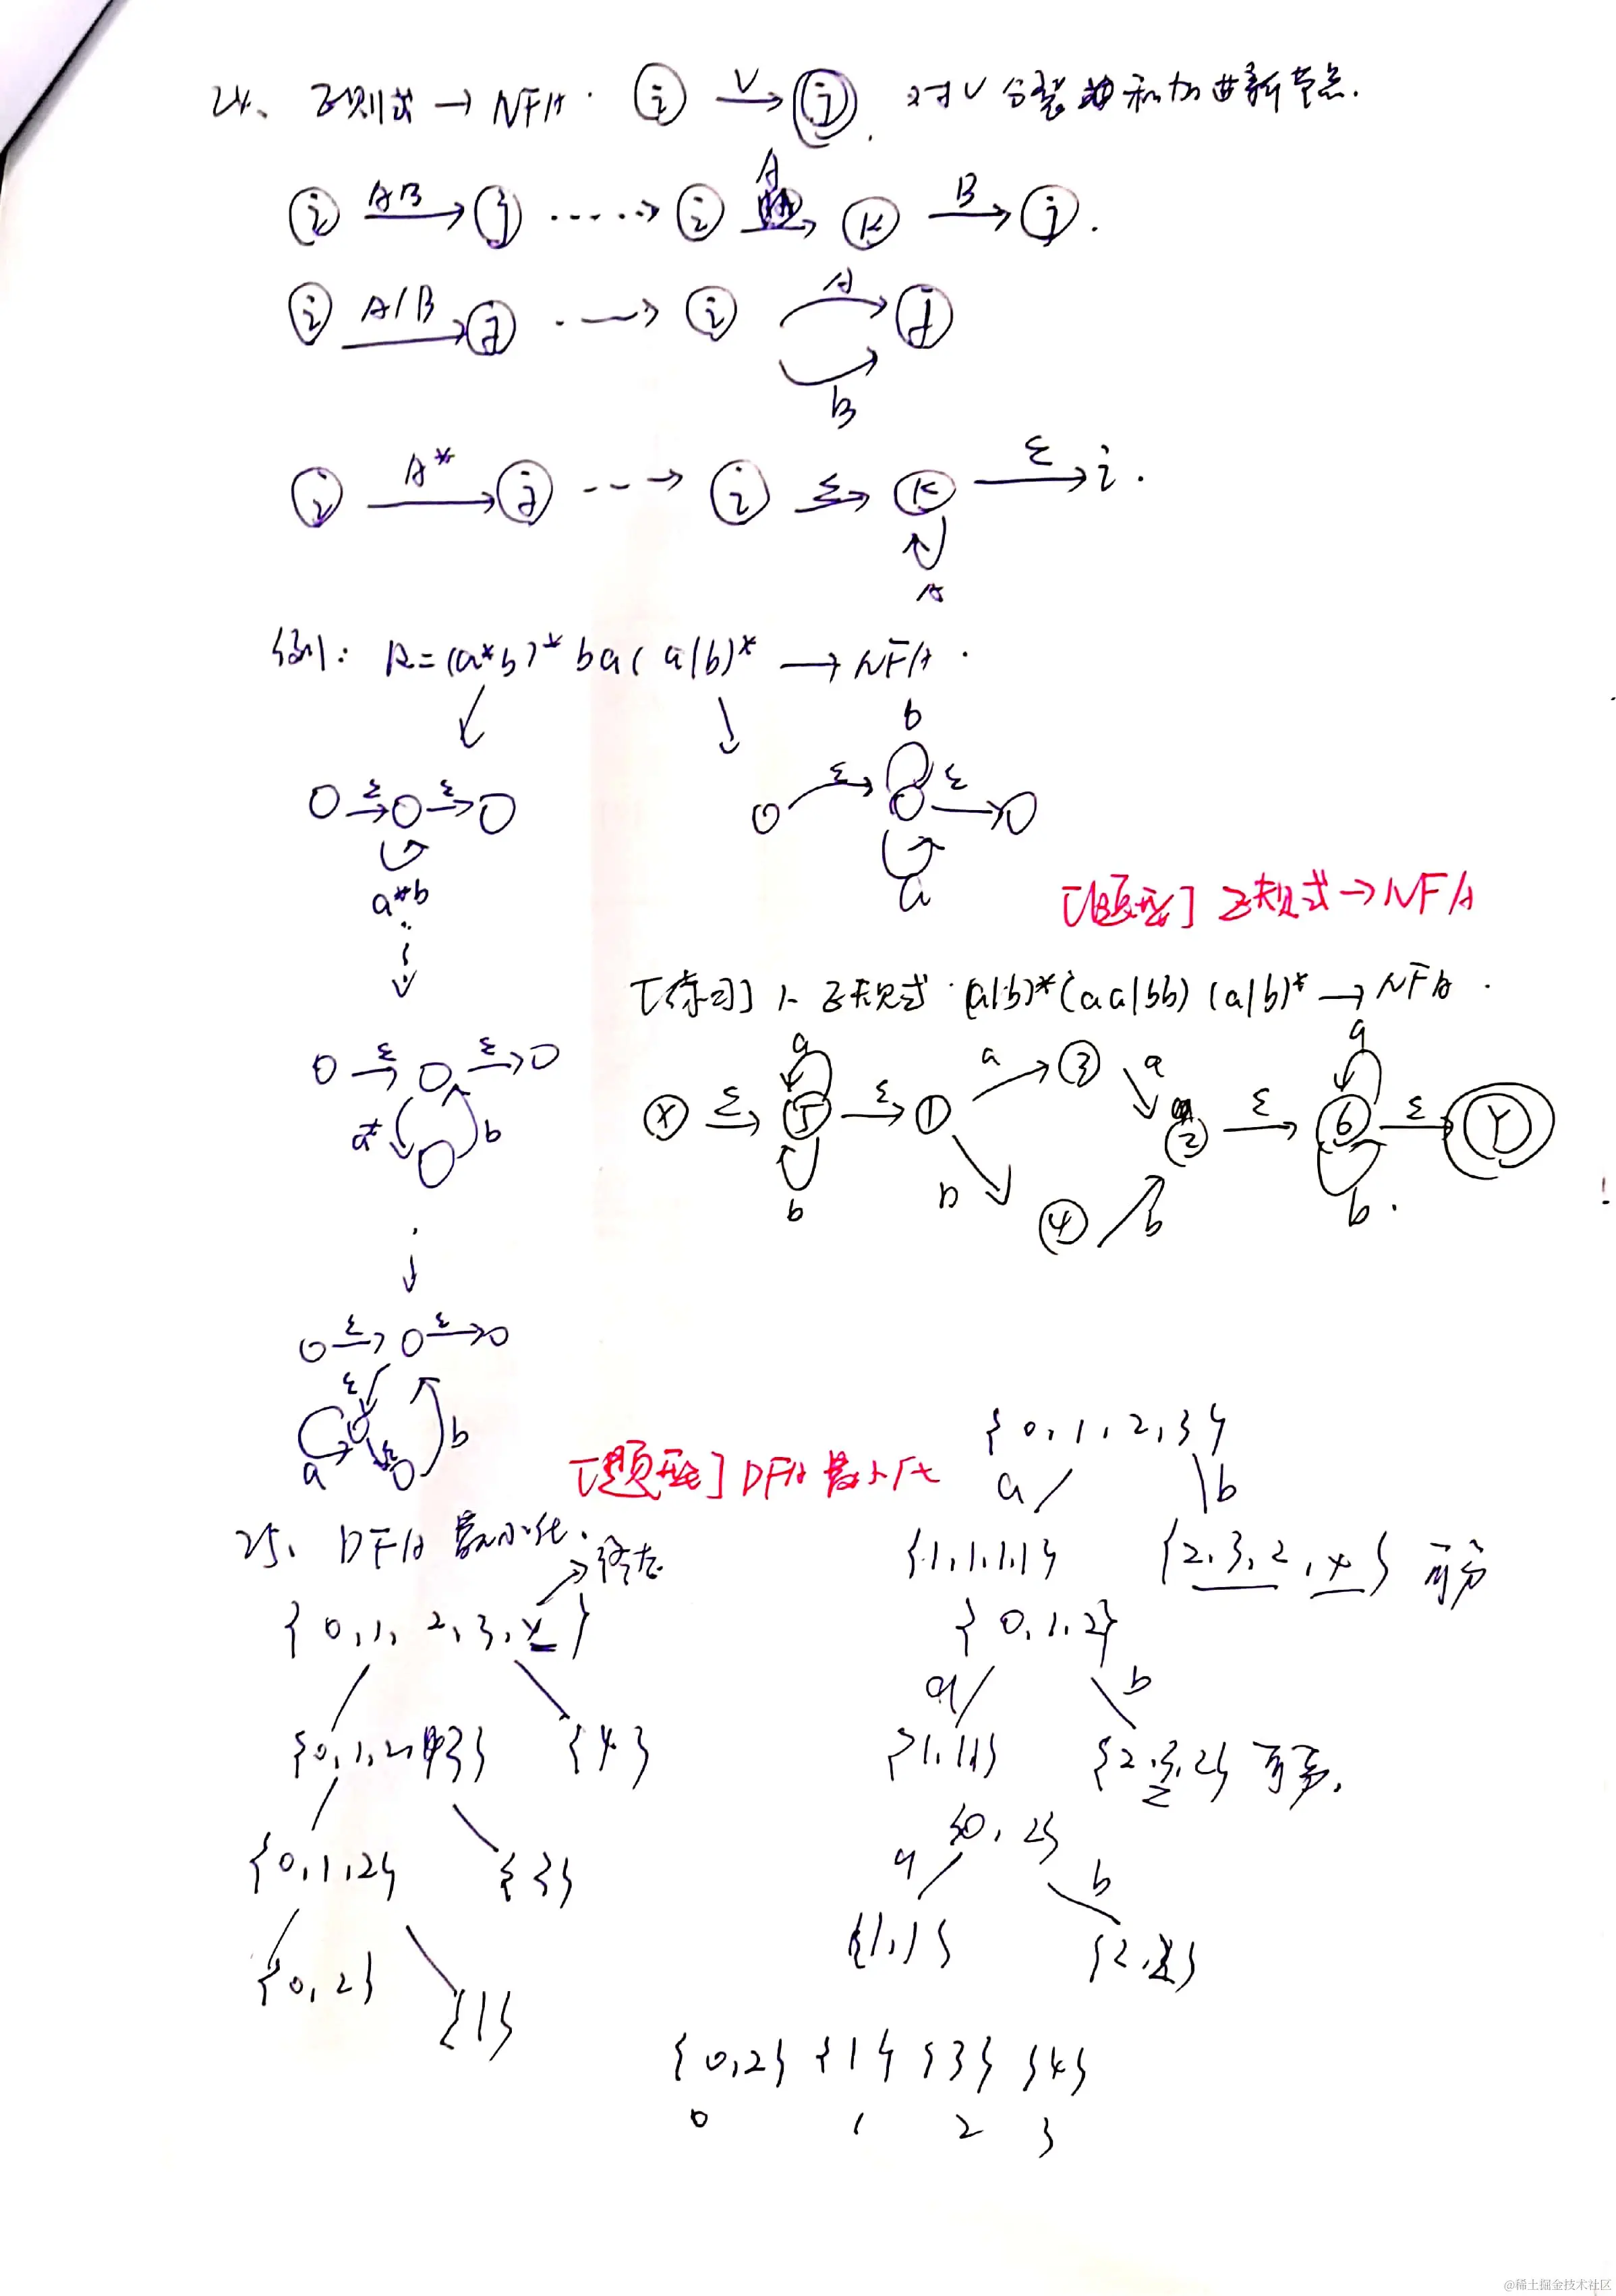 24、正则式 → NFA. i V→ j. 对V分裂和加进新节点.
i AB→ j ····→ i A→ K B→ j.
i A|B→ j ··→ i A B j
i A*→ j --→ i ε→ K ε→ i.
A
例: R=(a*b)*ba(a|b)* → NFA.
ε ε
a*b
ε b ε
a
[题型] 正规式→NFA
[练习] 1、正规式 (a|b)*(aa|bb)(a|b)* → NFA.
ε ε
a* b
X ε 5 ε 1 a 3 a 2 ε 6 ε Y
a b b 4 b a b.
ε ε
ε a ε b
[题型] DFA最小化
25、DFA最小化.
{0,1,2,3,4} 终态
{0,1,2,3} {4}
{0,1,2} {3}
{0,2} {1}
{0,1,2,3}
a b
{1,1,1,1} {2,3,2,4} 可分
{0,1,2}
a b
{1,1,1} {2,3,2}
{0,2}
a b
{1,1} {2,2}
{0,2} {1} {3} {4}
0 1 2 3
@稀土掘金技术社区